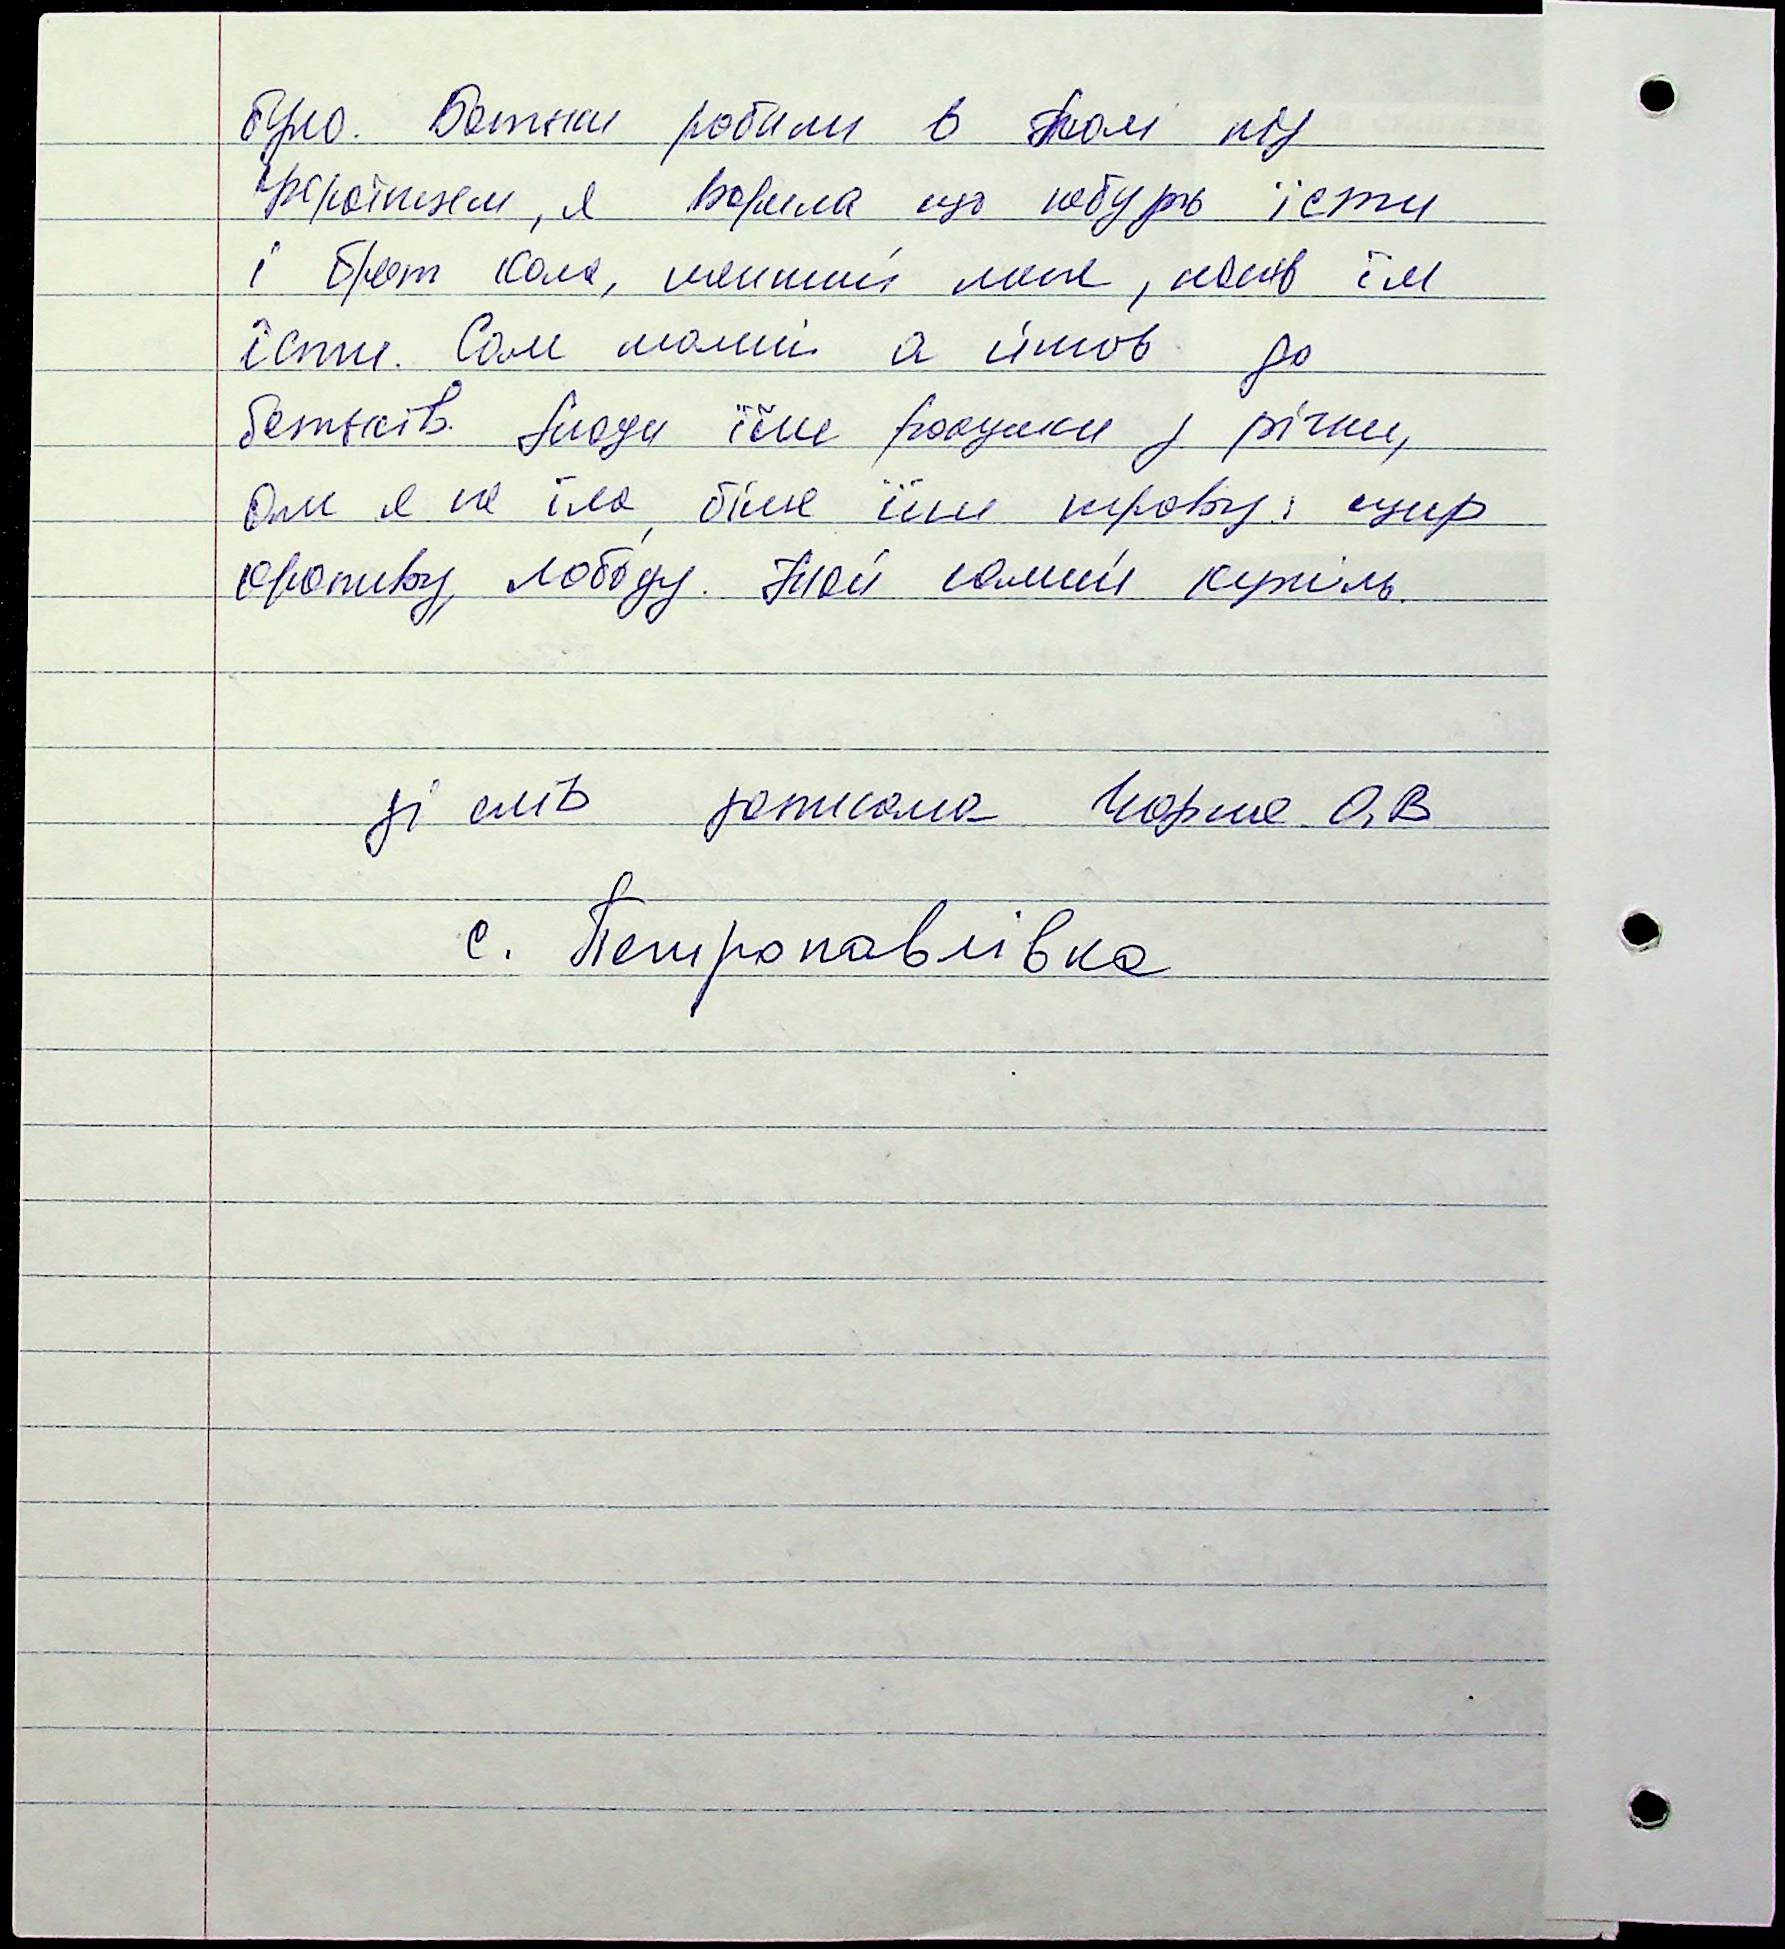 було. Батьки робили в полі під
Українцем, я варила що небудь їсти
і брат Коля, менший мене, носив їм
їсти. Сам малий а йшов до
батьків. Люди їли ракушки з річки,
Але я не їла, біле їли траву: щир
кропиву, лободу. Який самий куліль.
зі слів записала Чорна О,В
с. Петропавлівка